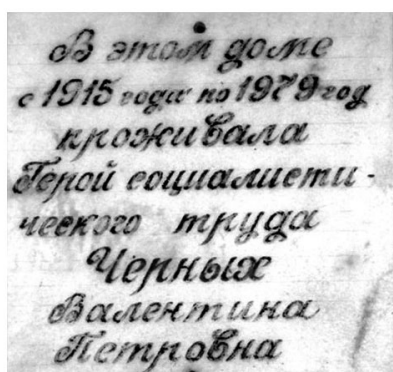 В этом доме
с 1915 года по 1979 год
проживала
Герой социалисти-
ческого труда
Черных
Валентина
Петровна